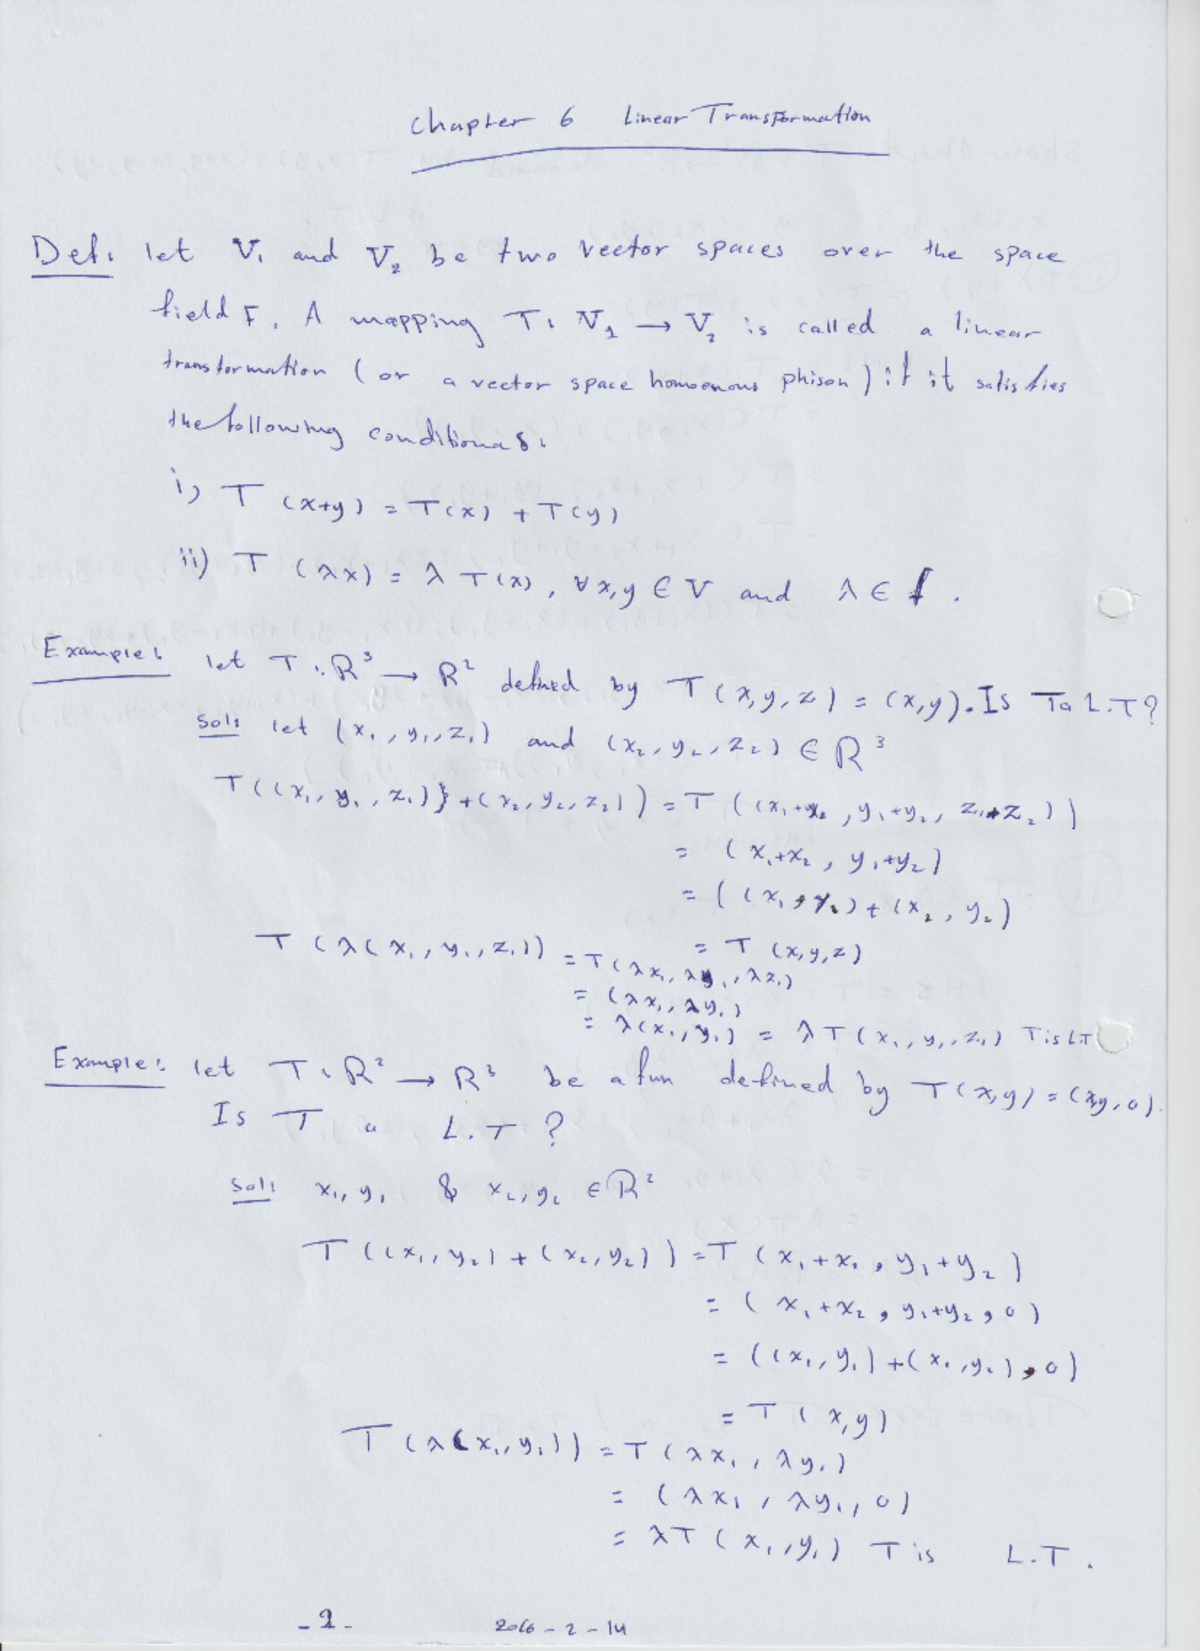 Chapter 6 Linear Transformation
Def: let V₁ and V₂ be two vector spaces over the space
field F. A mapping T: V₁ → V₂ is called a linear
transformation (or a vector space homoenous phison) if it satisfies
the following conditionas:
i) T (x+y) = T(x) + T(y)
ii) T (λx) = λ T(x), ∀ x,y ∈ V and λ ∈ f.
Example: let T: R³ → R² defined by T(x,y,z) = (x,y). Is T a L.T?
Sol: let (x₁, y₁, z₁) and (x₂, y₂, z₂) ∈ R³
T((x₁, y₁, z₁)} + (x₂, y₂, z₂)) = T ((x₁+x₂, y₁+y₂, z₁+z₂))
= (x₁+x₂, y₁+y₂)
= ((x₁, y₂) + (x₂, y₂)
= T (x,y,z)
T(λ(x₁, y₁, z₁)) = T(λx₁, λy₁, λz₁)
= (λx₁, λy₁)
= λ(x₁, y₁) = λ T(x₁, y₁, z₁) T is L.T
Example: let T: R² → R³ be a fun defined by T(x,y) = (x,y,0).
Is T a L.T?
Sol: x₁, y₁ & x₂, y₂ ∈ R²
T((x₁, y₂) + (x₂, y₂)) = T (x₁+x₂, y₁+y₂)
= (x₁+x₂, y₁+y₂, 0)
= ((x₁, y₁) + (x₂, y₂), 0)
= T (x,y)
T(λ(x₁, y₁)) = T(λx₁, λy₁)
= (λx₁, λy₁, 0)
= λT (x₁, y₁) T is L.T.
-1- 2016-2-14